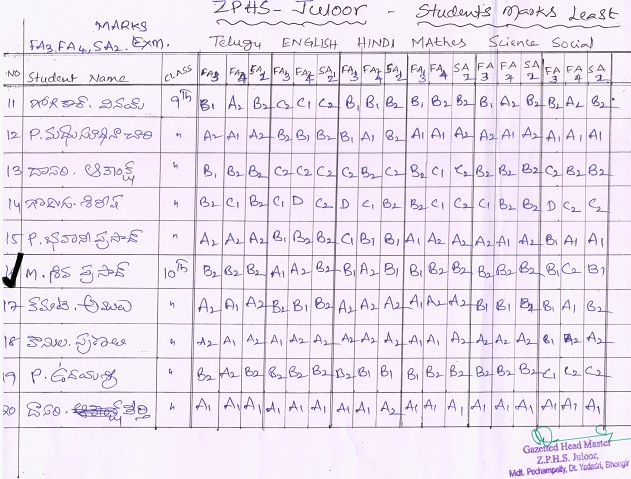 ZPHS- Juloor - Student's Marks Least
MARKS
FA3, FA4, SA2. EXM. Telugu ENGLISH HINDI MAthes Science Social
NO Student Name CLASS FA3 FA4 SA2 FA3 FA4 SA2 FA3 FA4 SA2 FA3 FA4 SA2 FA3 FA4 SA2 FA3 FA4 SA2
11 వినయ్ 9th B1 A2 B2 C2 C1 C2 B1 B1 B2 B2 B2 B2 B1 A2 B2 B2 A2 B2
12 P. " A2 A1 A2 B2 B1 B2 B1 A1 B2 A1 A1 A2 A2 A1 A2 A1 A1 A1
13 దాసరి. " B1 B2 B2 C2 C2 C2 C2 B2 C2 B2 C1 C2 B2 B2 B2 C2 B2 B2
14 శిరీష " B2 C1 B2 C1 D C2 D C1 B2 B2 C1 C2 C1 B2 B2 D C2 C2
15 P. భవాని ప్రసాద్ " A2 A2 A2 B1 B2 B2 C1 B1 B1 A1 A2 A2 A2 A2 A2 B1 A1 A1
16 M. శివ ప్రసాద్ 10th B2 B2 B2 A1 A2 B2 B1 A2 B1 B2 B2 B2 B2 B2 B2 B1 C2 B1
17 " A2 A1 A2 B2 B1 B2 A2 A2 A2 A2 A2 A2 B1 B1 B2 B1 A1 B2
18 " A2 A1 A2 A2 A1 A2 A2 A2 B1 A1 A2 A2 A2 A2 A2 B1 A2 A2
19 P. " B2 A2 B2 B2 B2 B2 B2 B1 B1 B1 B2 B2 B2 B2 B2 C1 C2 C2
20 దాసరి. " A1 A1 A1 A1 A1 A1 A1 A1 A2 A1 A1 A1 A1 A1 A1 A1 A1 A1
Gazetted Head Master
Z.P.H.S. Juloor,
Mdl. Pochampally, Dt. Yadadri, Bhongir